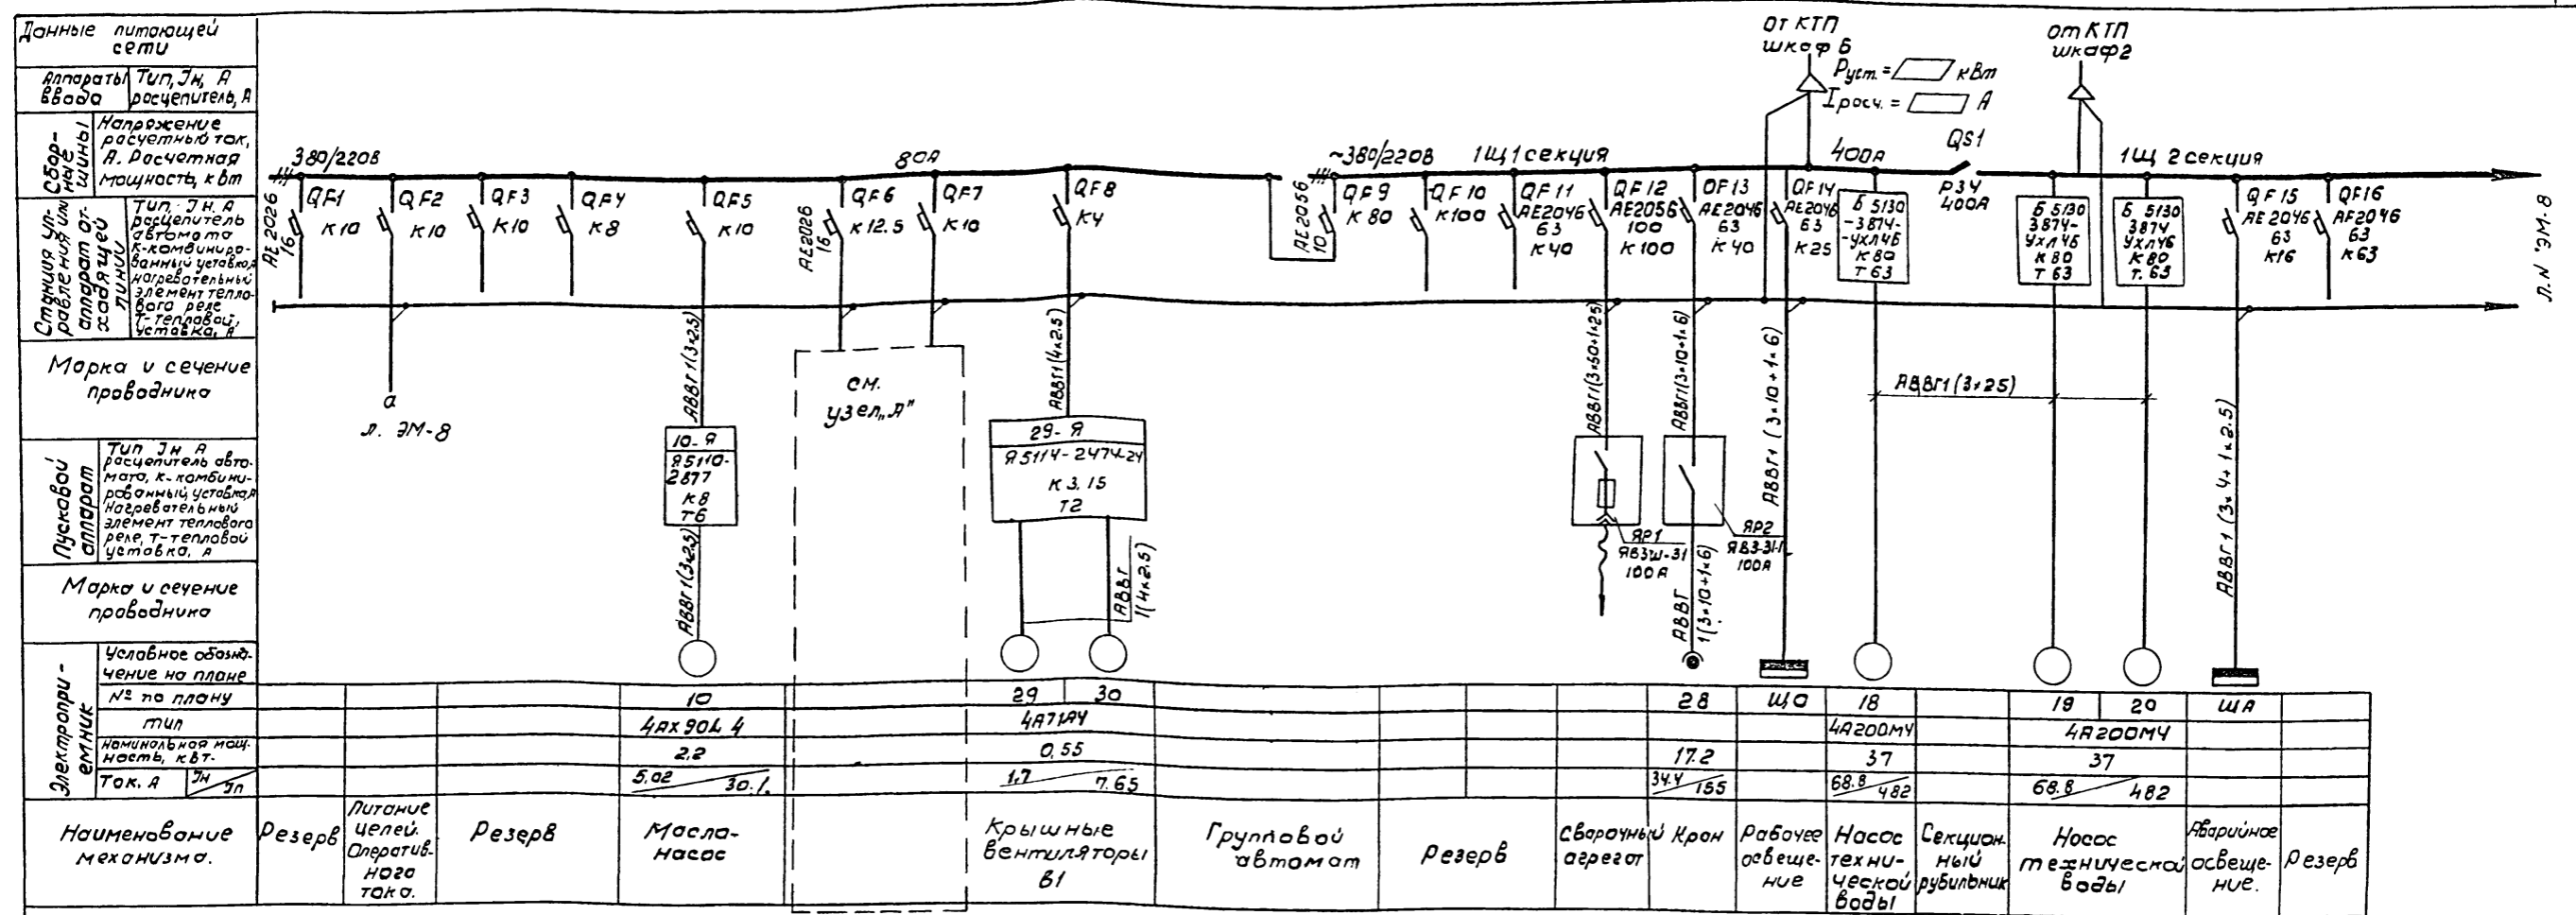 Данные питающей
сети
Аппараты
ввода
Тип, Iн, А
расцепитель, А
Сбор-
ные
шины
Напряжение
расчетный ток,
А. Расчетная
мощность, кВт
Станция уп-
равления или
аппарат от-
ходящей
линии
Тип, Iн, А
расцепитель
автомата
К-комбиниро-
ванный уставка, А
нагревательный
элемент тепло-
вого реле
Т-тепловой,
уставка, А
Марка и сечение
проводника
Пусковой
аппарат
Тип Iн А
расцепитель авто-
мата, К-комбини-
рованный, уставка, А
Нагревательный
элемент теплового
реле, Т-тепловой
уставка, А
Марка и сечение
проводника
Электропри-
емник
Условное обозна-
чение на плане
№ по плану
тип
Номинальная мощ-
ность, кВт.
Ток, А
Iн
Iп
Наименование
механизма.
380/220В
80А
АЕ2026
16
QF1
К10
QF2
К10
QF3
К10
QF4
К8
QF5
К10
АЕ2026
16
QF6
К12.5
QF7
К10
QF8
К4
~380/220В
1Щ1 секция
АЕ2056
10
QF9
К80
QF10
К100
QF11
АЕ2046
63
К40
QF12
АЕ2056
100
К100
QF13
АЕ2046
63
К40
QF14
АЕ2046
63
К25
От КТП
шкаф 6
Руст. = кВт
Iрасч. = А
400А
Б 5130
-3874-
-УХЛ4Б
К80
Т63
QS1
Р34
400А
от КТП
шкаф2
1Щ 2 секция
Б 5130
3874-
УХЛ4Б
К80
Т63
Б 5130
3874
УХЛ4Б
К80
Т.63
QF15
АЕ2046
63
К16
QF16
АЕ2046
63
К63
Л.N ЭМ-8
а
л. ЭМ-8
АВВГ1(3×2.5)
10-Я
Я5110-
2877
К8
Т6
АВВГ1(3×2.5)
см.
узел „А"
АВВГ1(4×2.5)
29-Я
Я5114-2474-24
К 3.15
Т2
АВВГ
1(4×2.5)
АВВГ1(3×50+1×25)
ЯР1
ЯВ3Ш-31
100А
АВВГ1(3×10+1×6)
ЯР2
ЯВ3-31-1
100А
АВВГ
1(3×10+1×6)
АВВГ1 (3×10+1×6)
АВВГ1(3×25)
АВВГ1 (3×4+1×2.5)
10 29 30 28 ЩО 18 19 20 ЩА
4АХ90L4 4А71А4 4А200М4 4А200М4
2,2 0,55 17.2 37 37
5,02 30.1 1.7 7.65 34.4 155 68.8 482 68.8 482
Резерв
Питание
цепей.
Оператив-
ного
тока.
Резерв
Масло-
насос
Крышные
вентиляторы
В1
Групповой
автомат
Резерв
Сварочный
агрегат
Кран
Рабочее
освеще-
ние
Насос
техни-
ческой
воды
Секцион-
ный
рубильник
Насос
технической
воды
Аварийное
освеще-
ние.
Резерв